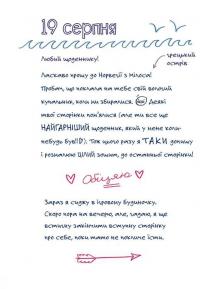 19 серпня
Любий щоденнику!
грецький
острів
Ласкаво прошу до Норвегії з Мілоса!
Пробач, що поклала на тебе свій вологий
купальник, коли ми збиралися. Деякі
твої сторінки пом'ялися (але ти все ще
НАЙГАРНІШИЙ щоденник, який у мене коли-
небудь був!!!). Тож цього разу я ТАКИ допишу
і розмалюю ЦІЛИЙ зошит, до останньої сторінки!
Обіцяю
Зараз я сиджу в ігровому будиночку.
Скоро пора на вечерю, але, гадаю, я ще
встигну закінчити вступну сторінку
про себе, поки тато не покличе їсти.